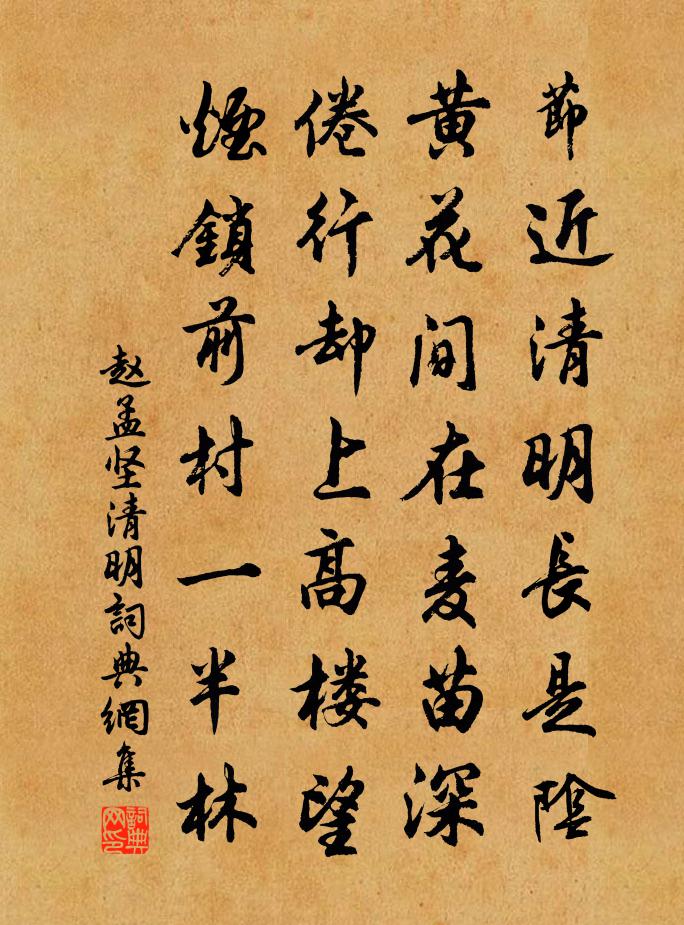 節近清明長是陰
黄花间在麦苗深
倦行却上高楼望
煙鎖前村一半林
赵孟坚清明詞典網集
詞典网印